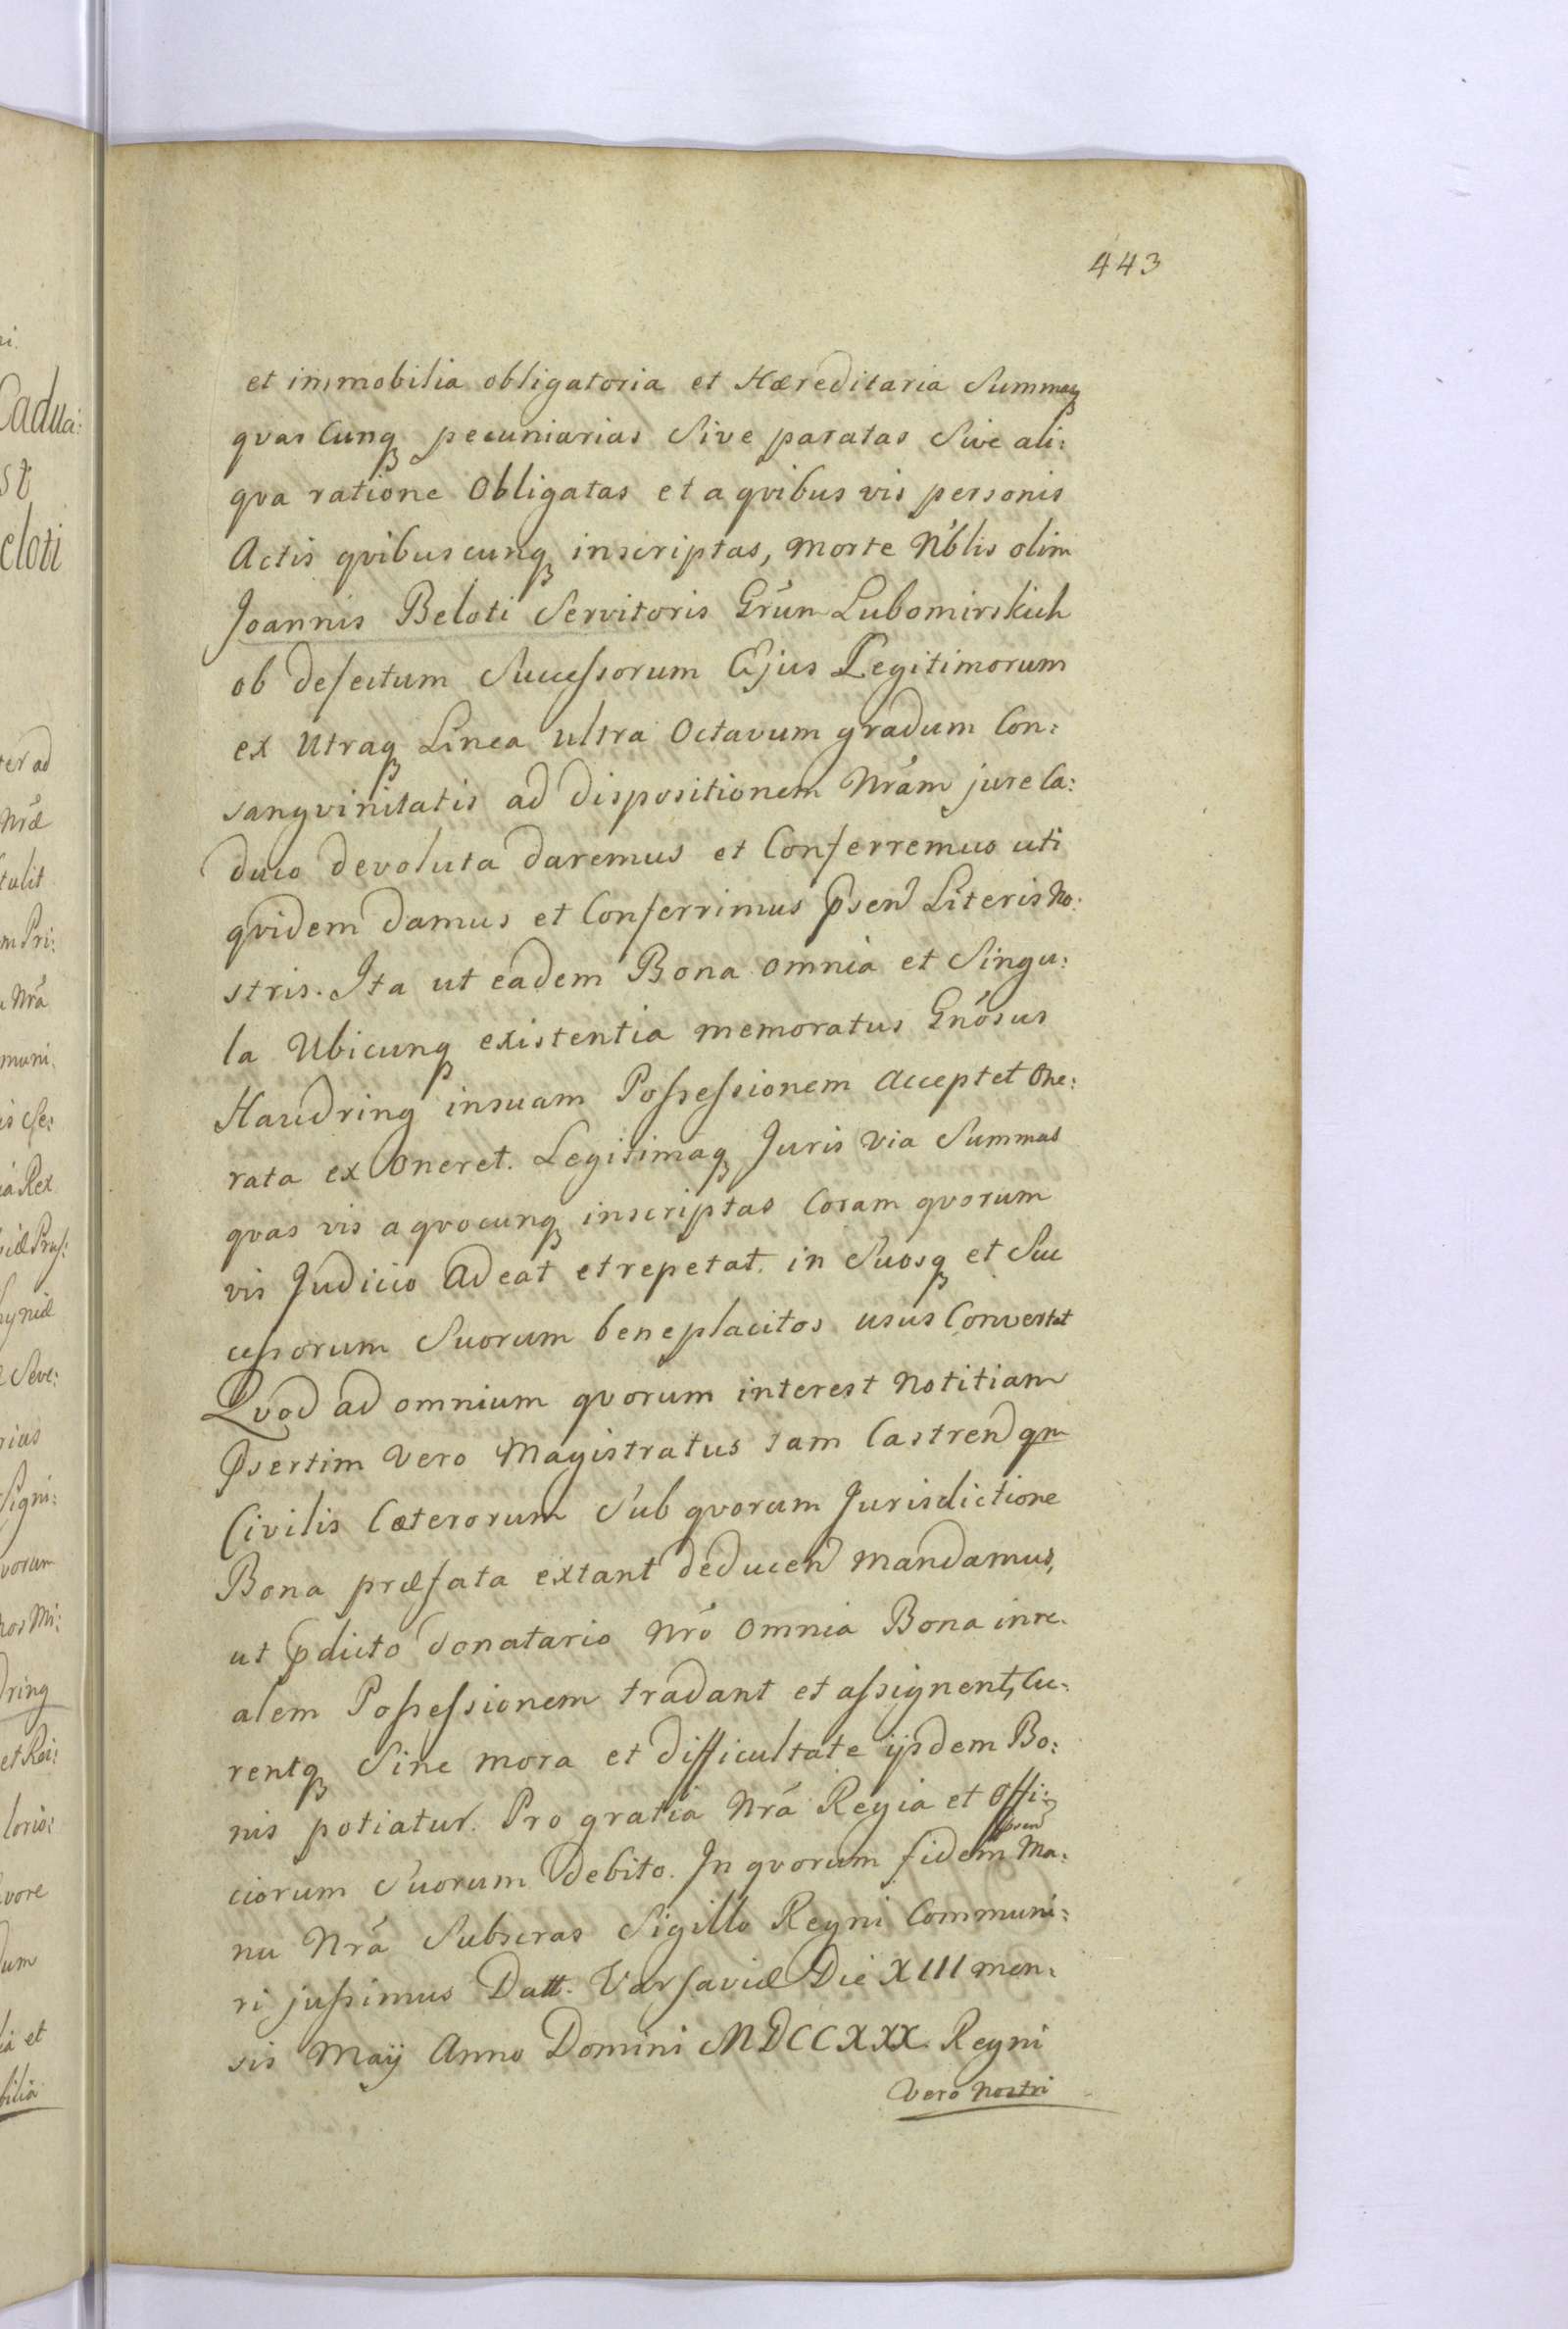 443
et immobilia obligatoria et Hæreditaria Summasq
qvas Cunq pecuniarias Sive paratas Sive ali:
qva ratione Obligatas et a qvibus vis personis
Actis qvibuscunq inscriptas, morte Nb́lis olim
Joannis Beloti Servitoris Gŕum Lubomirskich
ob defectum Successorum Ejus Legitimorum
ex Utraq Linea ultra Octavum gradum Con:
sangvinitatis ad dispositionem Nrám jure Ca:
duco devoluta daremus et Conferremus uti
qvidem damus et Conferrimus Psen Literis No:
stris. Ita ut eadem Bona omnia et Singu:
la Ubicunq existentia memoratus Gnósus
Haudring in suam Possessionem Acceptet One:
rata ex Oneret. Legitimaq Juris via Summas
qvas vis a qvocunq inscriptas Coram qvorum
vis Judicio Adeat et repetat. in Suosq et Suc
cessorum Suorum beneplacitos usus Convertat
Qvod ad omnium qvorum interest Notitiam
Psertim Vero Magistratus tam Castren qm
Civilis Cæterorum Sub qvorum Jurisdictione
Bona præfata extant deducen mandamus,
ut pdicto donatario Nró omnia Bona in re.
alem Possessionem tradant et assignent, Cu:
rentq Sine mora et difficultate ijsdem Bo:
nis potiatur. Pro gratia Nrá Regia et Offi:
ciorum Suorum debito. In qvorum fidem psen Ma:
nu Nrá Subscras Sigillo Regni Communi:
ri jussimus Datt. Varsaviæ Die XIII men:
sis Maij Anno Domini MDCCXXX Regni
Vero Nostri
i.
Cadua:
st
eloti
ter ad
Nræ
tulit
m Pri:
Nrá
muni.
is Se:
ia Rex
iæ Prus:
hyniæ
Seve:
rius
Signi:
vorum
nos Mi:
dring
et Rei:
lorio:
vore
dum
ia et
bilia